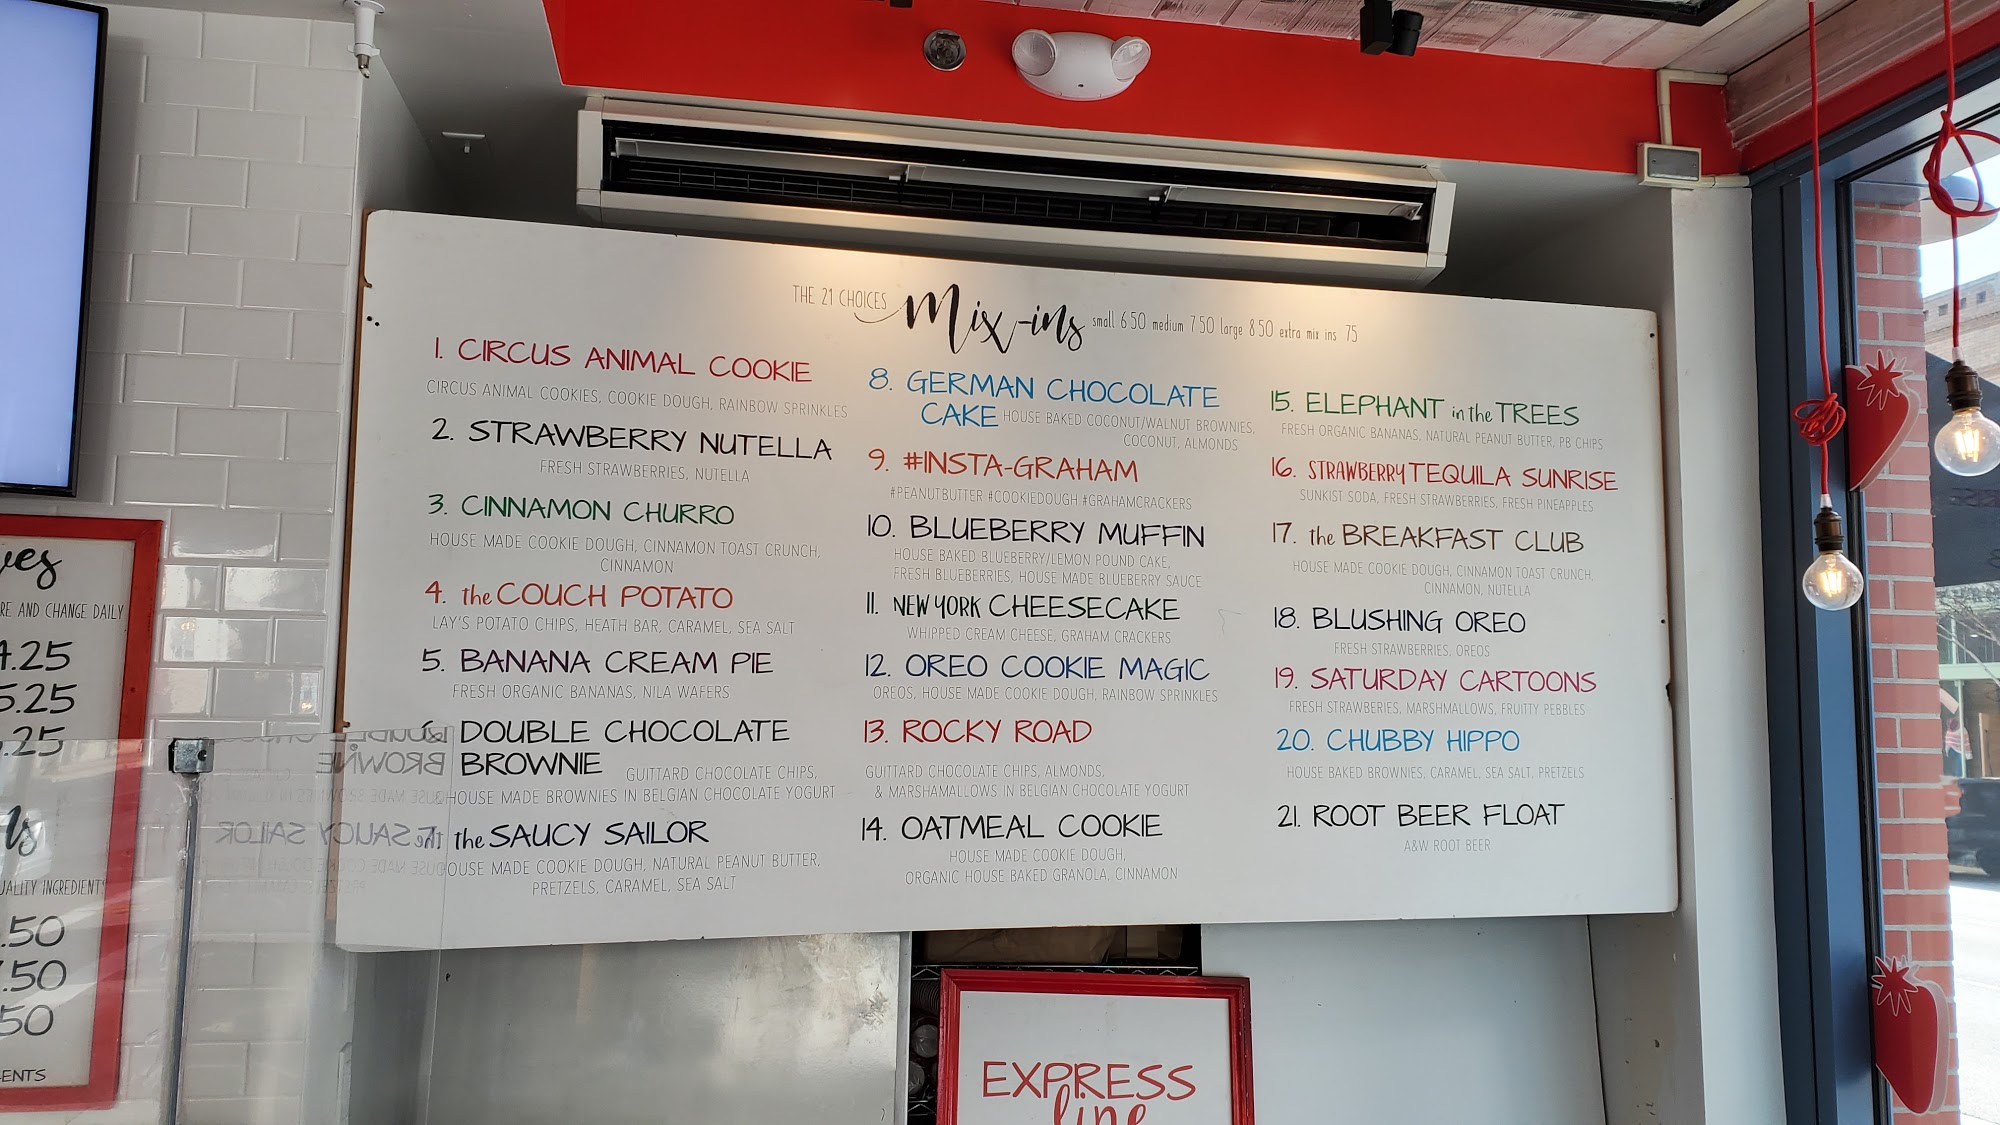 THE 21 CHOICES Mix-ins small 6.50 medium 7.50 large 8.50 extra mix ins .75
1. CIRCUS ANIMAL COOKIE
CIRCUS ANIMAL COOKIES, COOKIE DOUGH, RAINBOW SPRINKLES
2. STRAWBERRY NUTELLA
FRESH STRAWBERRIES, NUTELLA
3. CINNAMON CHURRO
HOUSE MADE COOKIE DOUGH, CINNAMON TOAST CRUNCH,
CINNAMON
4. the COUCH POTATO
LAY'S POTATO CHIPS, HEATH BAR, CARAMEL, SEA SALT
5. BANANA CREAM PIE
FRESH ORGANIC BANANAS, NILA WAFERS
6. DOUBLE CHOCOLATE
BROWNIE GUITTARD CHOCOLATE CHIPS,
HOUSE MADE BROWNIES IN BELGIAN CHOCOLATE YOGURT
7. the SAUCY SAILOR
HOUSE MADE COOKIE DOUGH, NATURAL PEANUT BUTTER,
PRETZELS, CARAMEL, SEA SALT
8. GERMAN CHOCOLATE
CAKE HOUSE BAKED COCONUT/WALNUT BROWNIES,
COCONUT, ALMONDS
9. #INSTA-GRAHAM
#PEANUTBUTTER #COOKIEDOUGH #GRAHAMCRACKERS
10. BLUEBERRY MUFFIN
HOUSE BAKED BLUEBERRY/LEMON POUND CAKE,
FRESH BLUEBERRIES, HOUSE MADE BLUEBERRY SAUCE
11. NEW YORK CHEESECAKE
WHIPPED CREAM CHEESE, GRAHAM CRACKERS
12. OREO COOKIE MAGIC
OREOS, HOUSE MADE COOKIE DOUGH, RAINBOW SPRINKLES
13. ROCKY ROAD
GUITTARD CHOCOLATE CHIPS, ALMONDS,
& MARSHAMALLOWS IN BELGIAN CHOCOLATE YOGURT
14. OATMEAL COOKIE
HOUSE MADE COOKIE DOUGH,
ORGANIC HOUSE BAKED GRANOLA, CINNAMON
15. ELEPHANT in the TREES
FRESH ORGANIC BANANAS, NATURAL PEANUT BUTTER, PB CHIPS
16. STRAWBERRY TEQUILA SUNRISE
SUNKIST SODA, FRESH STRAWBERRIES, FRESH PINEAPPLES
17. the BREAKFAST CLUB
HOUSE MADE COOKIE DOUGH, CINNAMON TOAST CRUNCH,
CINNAMON, NUTELLA
18. BLUSHING OREO
FRESH STRAWBERRIES, OREOS
19. SATURDAY CARTOONS
FRESH STRAWBERIES, MARSHMALLOWS, FRUITY PEBBLES
20. CHUBBY HIPPO
HOUSE BAKED BROWNIES, CARAMEL, SEA SALT, PRETZELS
21. ROOT BEER FLOAT
A&W ROOT BEER
RE AND CHANGE DAILY
4.25
5.25
.25
UALITY INGREDIENTS
.50
7.50
50
ENTS
EXPRESS
line